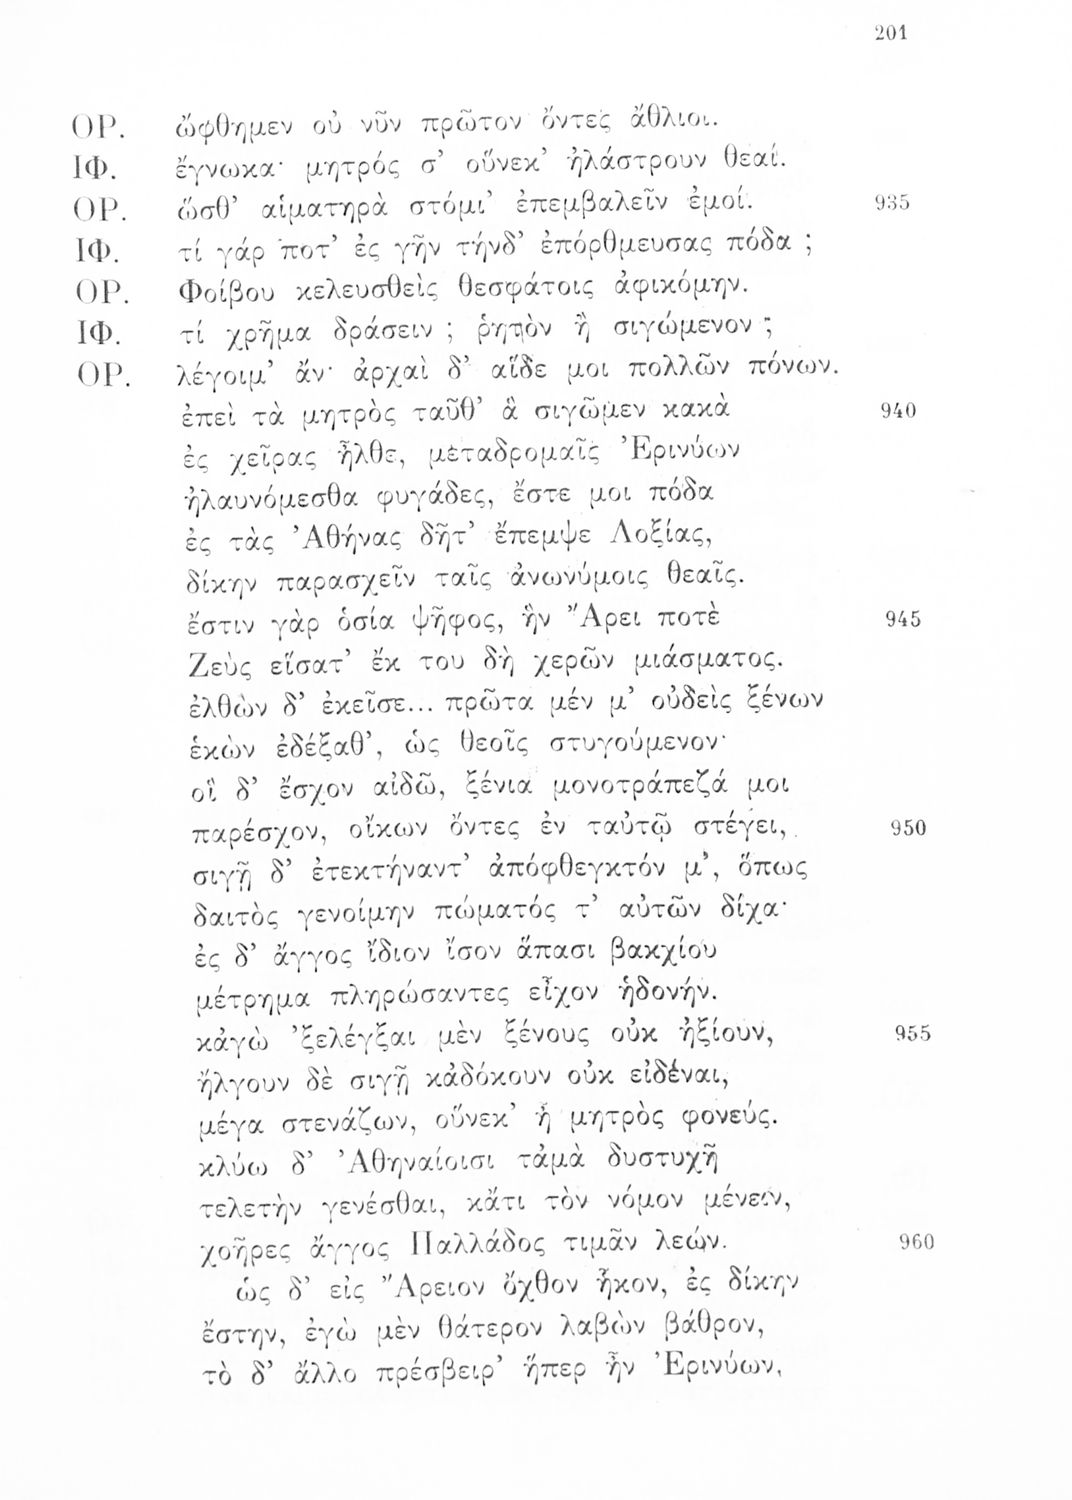 201
ΟΡ. ὤφθημεν οὐ νῦν πρῶτον ὄντες ἄθλιοι.
ΙΦ. ἔγνωκα· μητρός σ’ οὕνεκ’ ἠλάστρουν θεαί.
ΟΡ. ὥσθ’ αἱματηρὰ στόμι’ ἐπεμβαλεῖν ἐμοί. 935
ΙΦ. τί γάρ ποτ’ ἐς γῆν τήνδ’ ἐπόρθμευσας πόδα ;
ΟΡ. Φοίβου κελευσθεὶς θεσφάτοις ἀφικόμην.
ΙΦ. τί χρῆμα δράσειν ; ῥητὸν ἢ σιγώμενον ;
ΟΡ. λέγοιμ’ ἄν· ἀρχαὶ δ’ αἵδε μοι πολλῶν πόνων.
ἐπεὶ τὰ μητρὸς ταῦθ’ ἃ σιγῶμεν κακὰ 940
ἐς χεῖρας ἦλθε, μεταδρομαῖς Ἐρινύων
ἠλαυνόμεσθα φυγάδες, ἔστε μοι πόδα
ἐς τὰς Ἀθήνας δῆτ’ ἔπεμψε Λοξίας,
δίκην παρασχεῖν ταῖς ἀνωνύμοις θεαῖς.
ἔστιν γὰρ ὁσία ψῆφος, ἣν Ἄρει ποτὲ 945
Ζεὺς εἵσατ’ ἔκ του δὴ χερῶν μιάσματος.
ἐλθὼν δ’ ἐκεῖσε... πρῶτα μέν μ’ οὐδεὶς ξένων
ἑκὼν ἐδέξαθ’, ὡς θεοῖς στυγούμενον·
οἳ δ’ ἔσχον αἰδῶ, ξένια μονοτράπεζά μοι
παρέσχον, οἴκων ὄντες ἐν ταὐτῷ στέγει, 950
σιγῇ δ’ ἐτεκτήναντ’ ἀπόφθεγκτόν μ’, ὅπως
δαιτὸς γενοίμην πώματός τ’ αὐτῶν δίχα·
ἐς δ’ ἄγγος ἴδιον ἴσον ἅπασι βακχίου
μέτρημα πληρώσαντες εἶχον ἡδονήν.
κἀγὼ ’ξελέγξαι μὲν ξένους οὐκ ἠξίουν, 955
ἤλγουν δὲ σιγῇ κἀδόκουν οὐκ εἰδέναι,
μέγα στενάζων, οὕνεκ’ ἦ μητρὸς φονεύς.
κλύω δ’ Ἀθηναίοισι τἀμὰ δυστυχῆ
τελετὴν γενέσθαι, κἄτι τὸν νόμον μένειν,
χοῆρες ἄγγος Παλλάδος τιμᾶν λεών. 960
ὡς δ’ εἰς Ἄρειον ὄχθον ἧκον, ἐς δίκην
ἔστην, ἐγὼ μὲν θάτερον λαβὼν βάθρον,
τὸ δ’ ἄλλο πρέσβειρ’ ἥπερ ἦν Ἐρινύων,